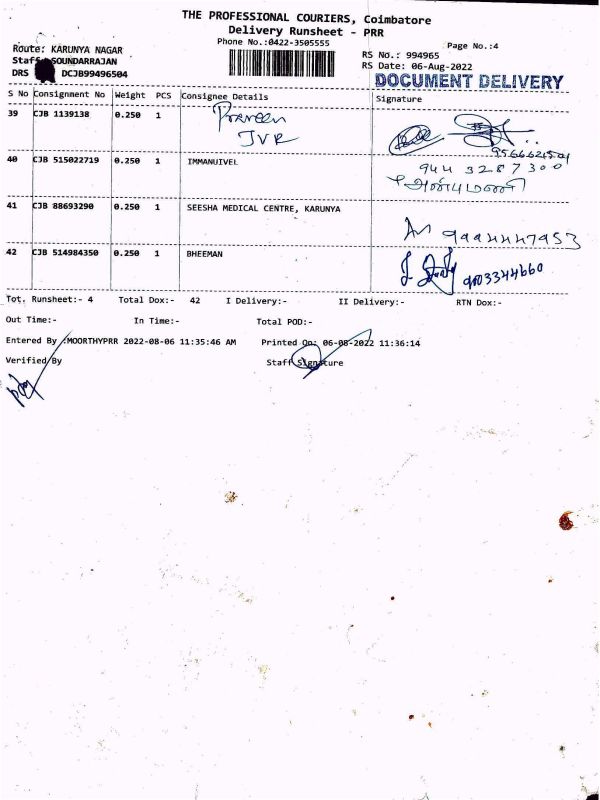 THE PROFESSIONAL COURIERS, Coimbatore
Delivery Runsheet - PRR
Phone No.:0422-3505555
Page No.:4
Route: KARUNYA NAGAR
RS No.: 994965
Staff: SOUNDARRAJAN
RS Date: 06-Aug-2022
DRS DCJB99496504
DOCUMENT DELIVERY
S No Consignment No Weight PCS Consignee Details Signature
39 CJB 1139138 0.250 1 Praveen
JVR
9566621501
40 CJB 515022719 0.250 1 IMMANUIVEL 944 3287300
அன்புமணி
41 CJB 88693290 0.250 1 SEESHA MEDICAL CENTRE, KARUNYA
9994447953
42 CJB 514984350 0.250 1 BHEEMAN 9003344660
Tot. Runsheet:- 4 Total Dox:- 42 I Delivery:- II Delivery:- RTN Dox:-
Out Time:- In Time:- Total POD:-
Entered By :MOORTHYPRR 2022-08-06 11:35:46 AM Printed On: 06-08-2022 11:36:14
Verified By Staff Signature